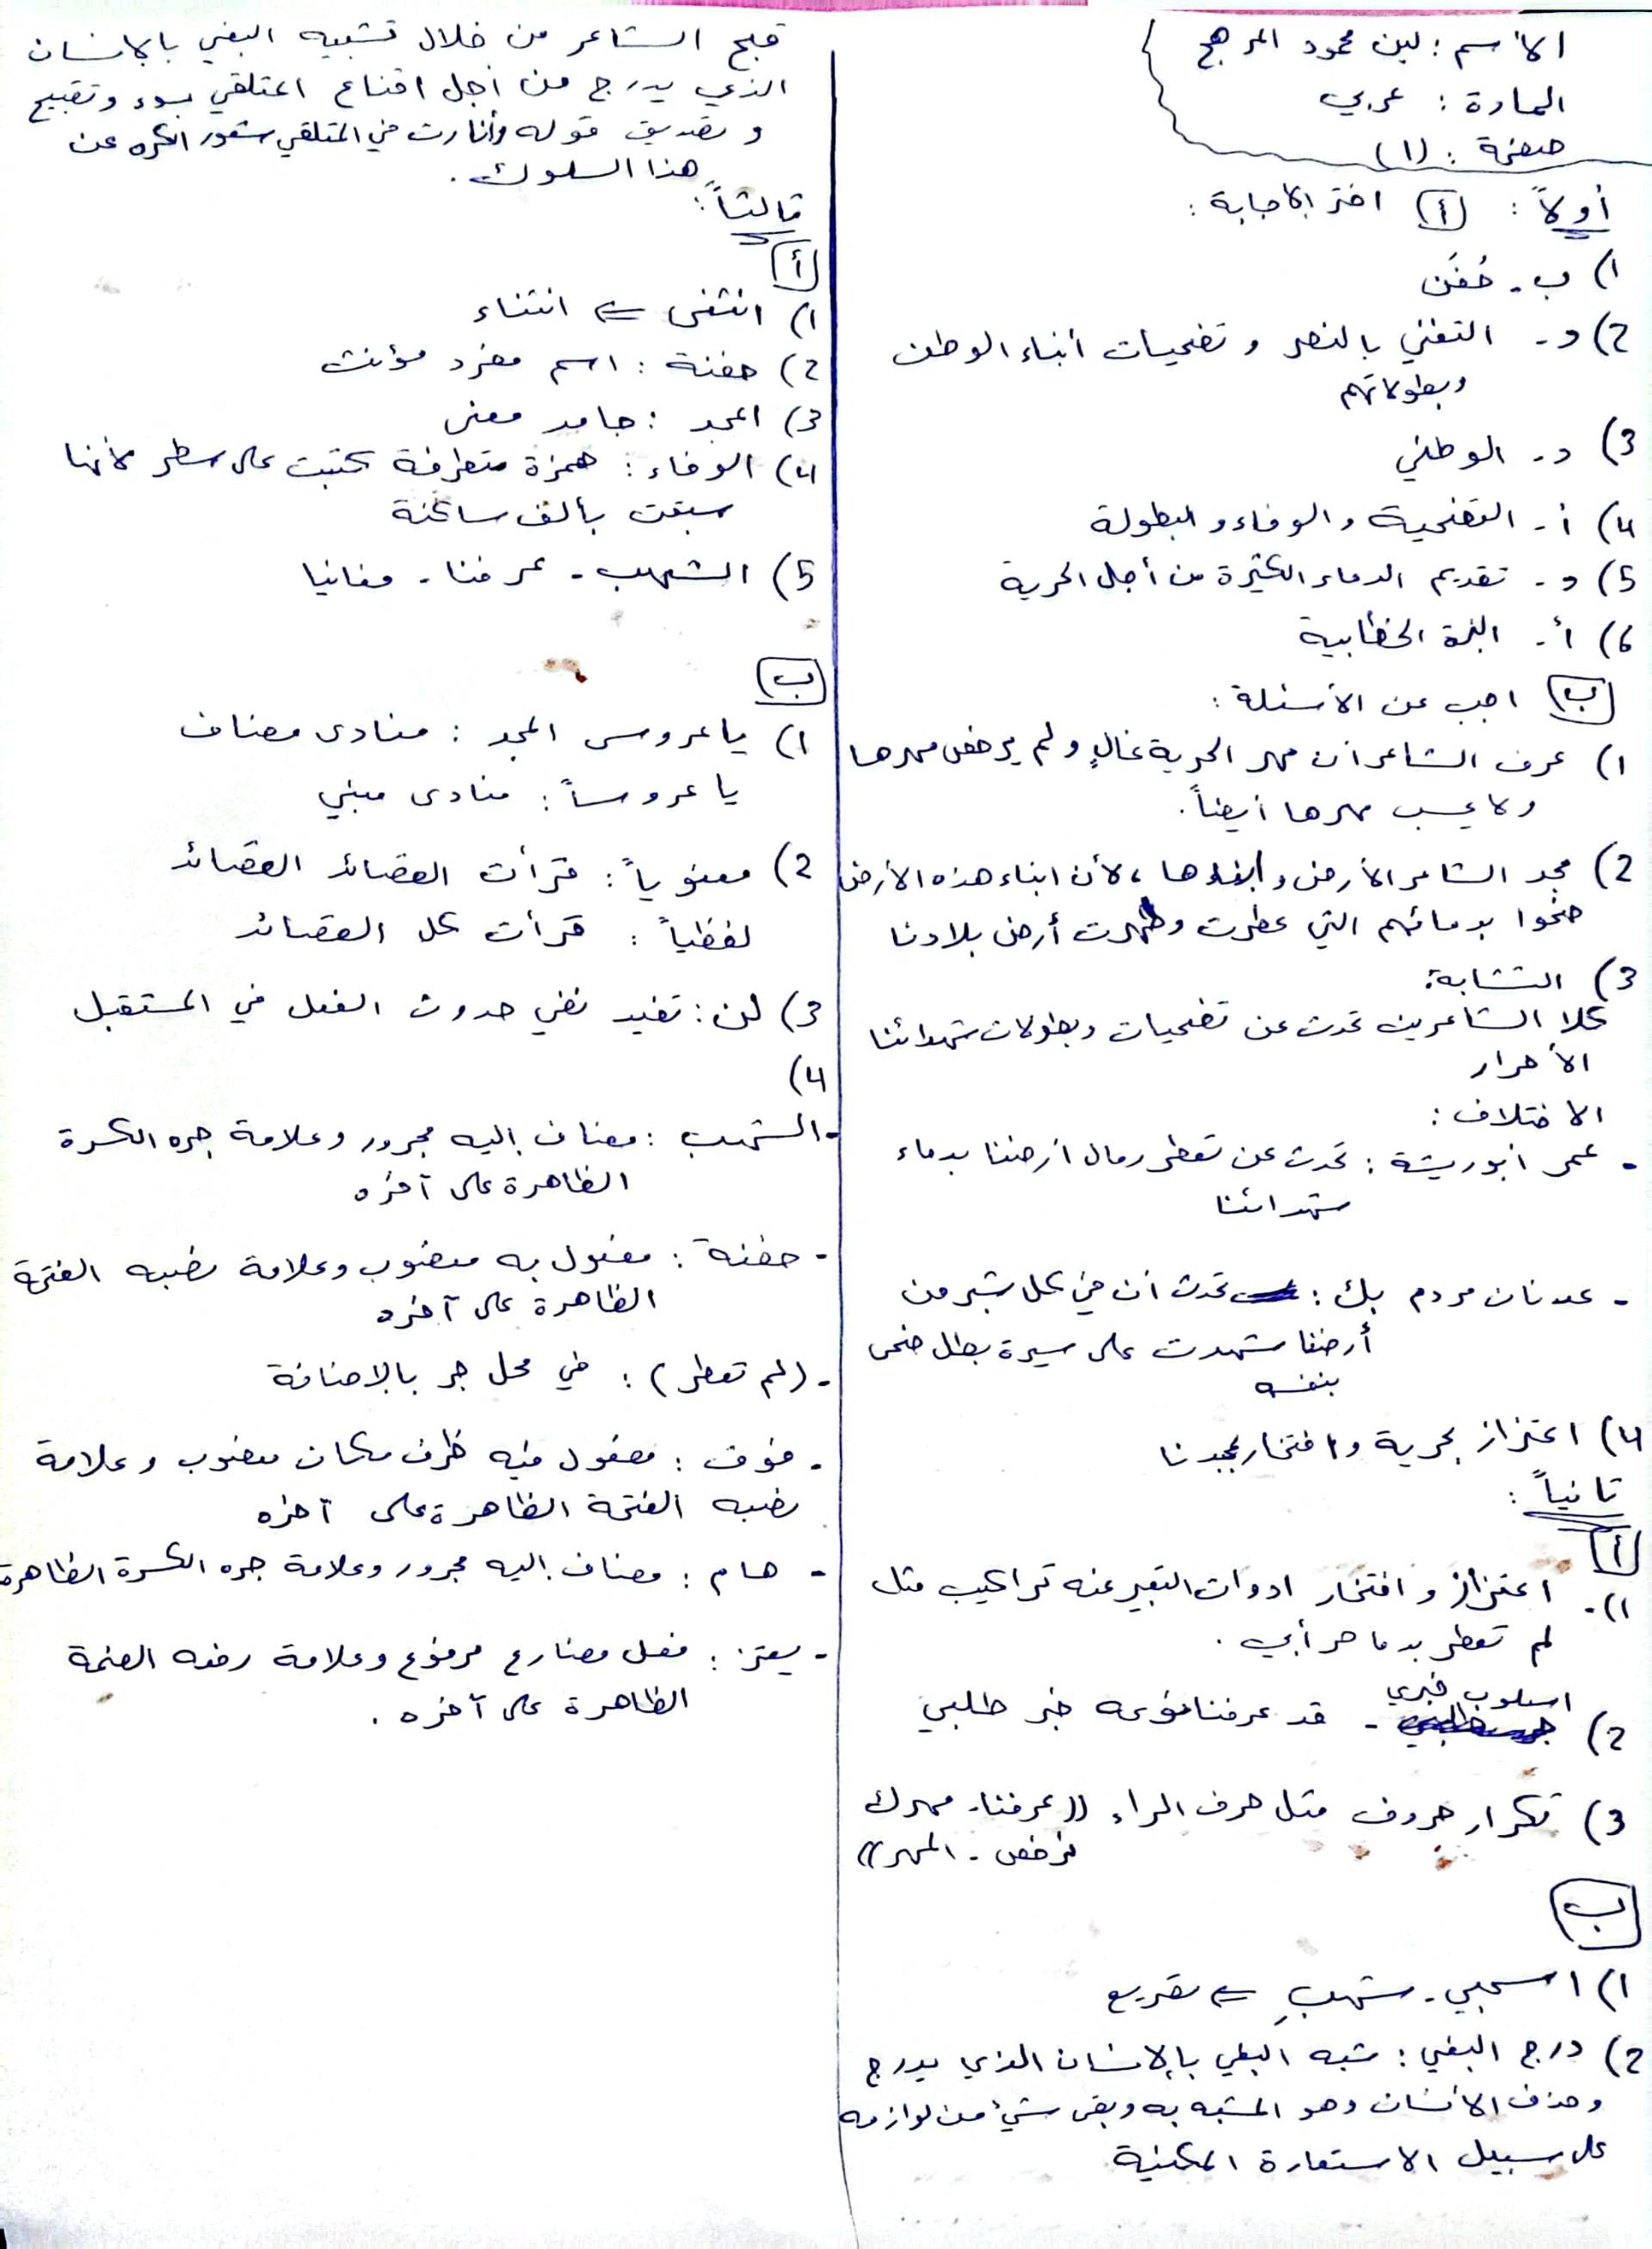 الاسم : لين محمود المرهج
المادة : عربي
صفحة : (1)
أولاً : أ اختر الاجابة :
1) ب - حُفَن
2) د - التغني بالنصر و تضحيات أبناء الوطن
وبطولاتهم
3) د - الوطني
4) أ - التضحية والوفاء و البطولة
5) د - تقديم الدماء الكثيرة من أجل الحرية
6) أ - النبرة الخطابية
ب اجب عن الأسئلة :
1) عرف الشاعر أن مهر الحرية غالٍ ولم يرخص مهرها
ولا يحسب مهرها أيضاً .
2) مجد الشاعر الأرض و أبناءها ، لأن ابناء هذه الأرض
ضحوا بدمائهم التي عطرت وطهرت أرض بلادنا
3) التشابه :
كلا الشاعرين تحدث عن تضحيات وبطولات شهدائنا
الأحرار
الاختلاف :
- عمر ابو ريشة : تحدث عن تعطر رمال ارضنا بدماء
شهدائنا
- عدنان مردم بك : تحدث أن في كل شبر من
أرضنا شهدت على سيرة بطل ضحى
بنفسه
4) اعتزاز بحرية و افتخار بمجدنا
ثانياً :
أ
1) - اعتزاز و افتخار ادوات التعبير عنه تراكيب مثل
لم تعطر بدما حر أبي .
2) اسلوب خبري - قد عرفنا نوعه خبر طلبي
3) تكرار حروف مثل حرف الراء (( عرفنا - مهرك
نرخص - المهر ))
ب
1) اسحبي - شهبِ ⇐ تصريع
2) درج البغي : شبه البغي بالإنسان الذي يدرج
وحذف الانسان وهو المشبه به وبقى شيء من لوازمه
على سبيل الاستعارة المكنية
قبح الشاعر من خلال تشبيه البغي بالانسان
الذي يدرج من اجل اقناع المتلقي بسوء وتقبيح
و تصديق قوله وأثارت في المتلقي شعور الكره عن
هذا السلوك .
ثالثاً :
أ
1) انثنى ⇐ انثناء
2) حفنة : اسم مفرد مؤنث
3) المجد : جامد معنى
4) الوفاء : همزة متطرفة كتبت على سطر لأنها
سبقت بألف ساكنة
5) الشهب - عرفنا - مغانيا
ب
1) يا عروس المجد : منادى مضاف
يا عروساً : منادى مبني
2) معنوياً : قرأت القصائد القصائد
لفظياً : قرأت كل القصائد
3) لن : تفيد نفي حدوث الفعل في المستقبل
4)
- الشهب : مضاف إليه مجرور وعلامة جره الكسرة
الظاهرة على آخره
- حفنة : مفعول به منصوب وعلامة نصبه الفتحة
الظاهرة على آخره
- (لم تعطر) : في محل جر بالإضافة
- فوق : مفعول فيه ظرف مكان منصوب و علامة
نصبه الفتحة الظاهرة على آخره
- هام : مضاف إليه مجرور وعلامة جره الكسرة الظاهرة
- يعتز : فعل مضارع مرفوع وعلامة رفعه الضمة
الظاهرة على آخره .